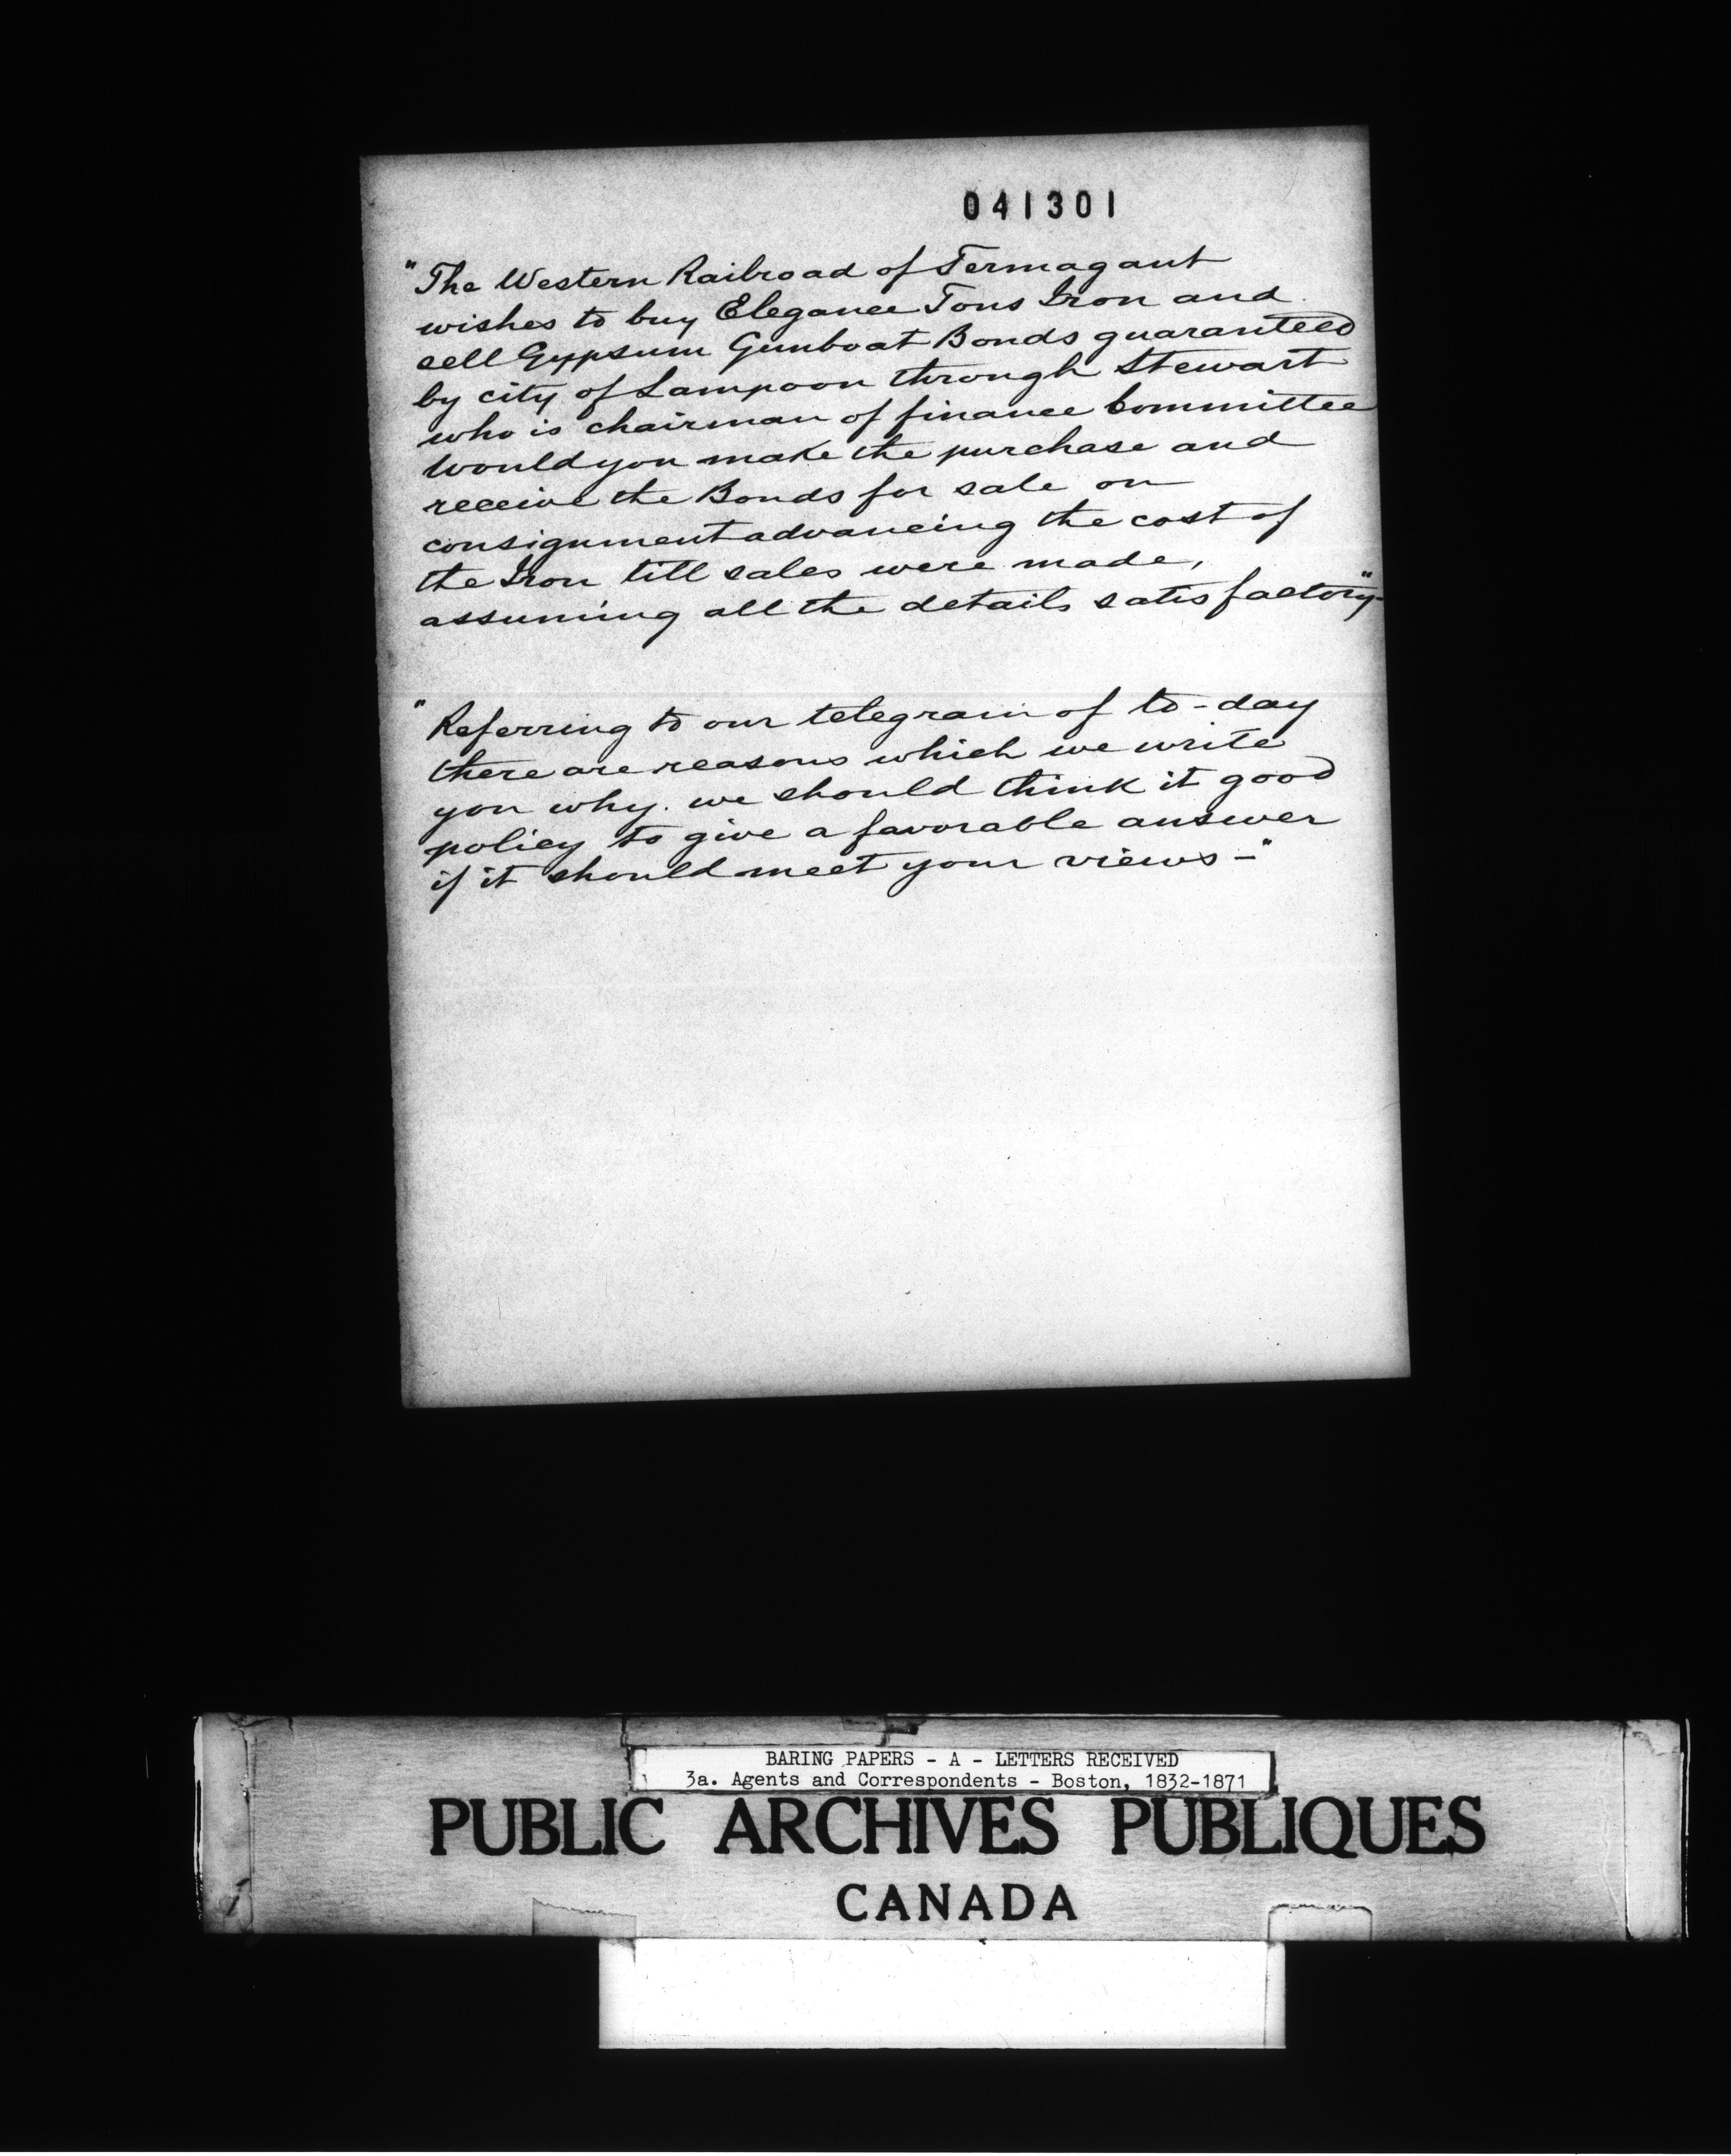 041301
"The Western Railroad of Termagant
wishes to buy Elegance Tons Iron and
sell Gypsum Gunboat Bonds guaranteed
by city of Lampoon through Stewart
who is chairman of finance Committee
Would you make the purchase and
receive the Bonds for sale on
consignment advancing the cost of
the Iron till sales were made,
assuming all the details satisfactory-"
"Referring to our telegram of to-day
there are reasons which we write
you why we should think it good
policy to give a favorable answer
if it should meet your views -"
BARING PAPERS - A - LETTERS RECEIVED
3a. Agents and Correspondents - Boston, 1832-1871
PUBLIC ARCHIVES PUBLIQUES
CANADA